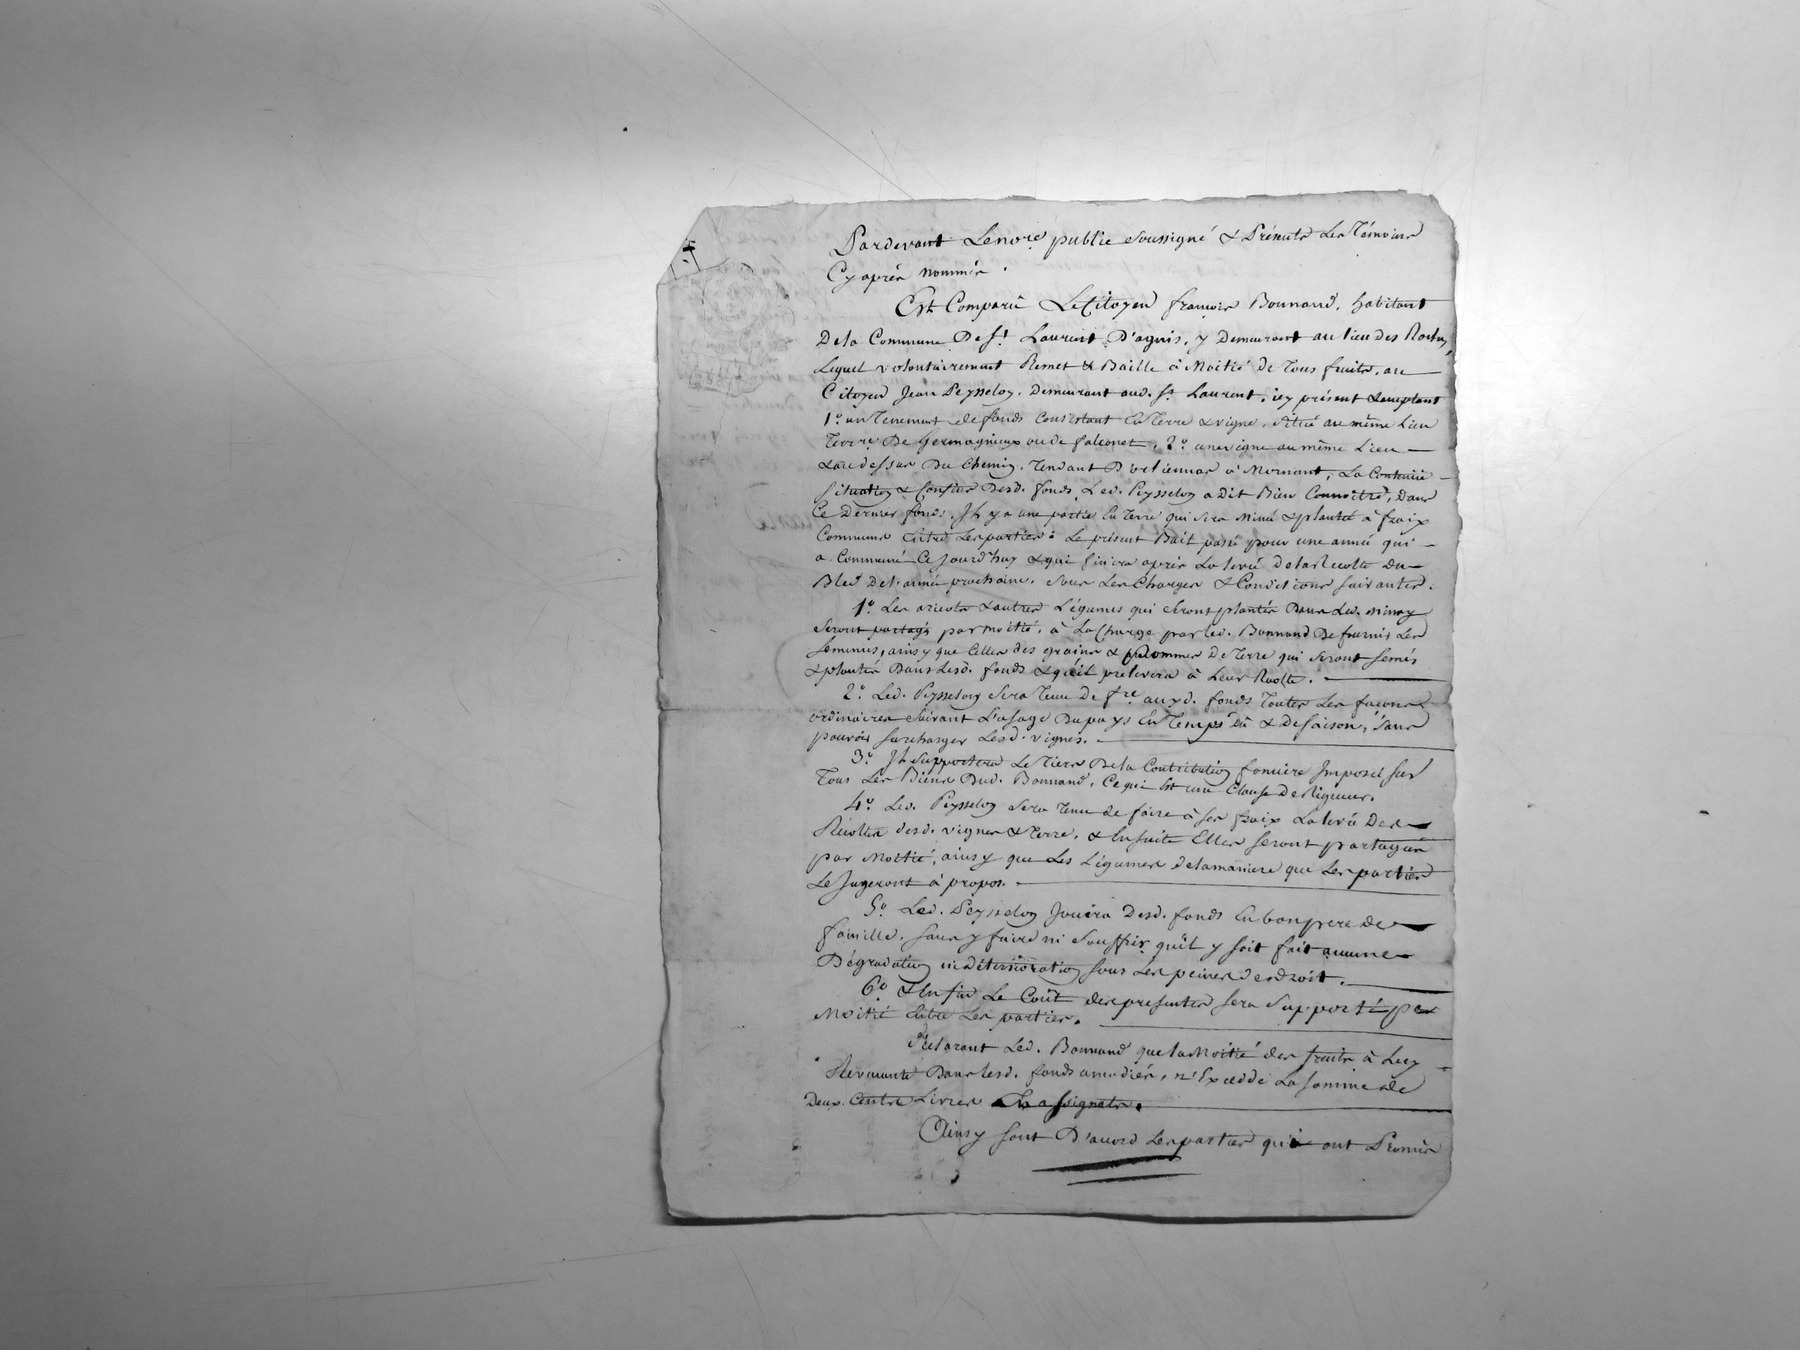 Pardevant Lenore public soussigné & Présents Les Témoins
Cy après nommés.
Est Comparu Le Citoyen françois Bonnand, habitant
Dela Commune De St. Laurent D'agnis, y Demeurant au lieu des
Lequel volontairement Remet & Baille à Moitié de Tous fruits, au
Citoyen Jean Peysselon, Demeurant aud. St. Laurent, icy présent & acceptant
1.° un Tenement de fonds Consistant En Terre & vigne, situé au même Lieu
Terre De Germagnieux ou de falconet, 2.° une vigne au même Lieu
& au dessus Du Chemin, Tendant D'orlienas à Mornant, La Contenue
situation & Confins Desd. fonds, Led. Peysselon a dit Bien Connoitre, Dans
Ce Dernier fonds, Il y a une partie En Terre qui sera Miné & planté à fraix
Communs Entre Les parties: Le présent Bail passé pour une année qui
a Commencé Ce Jourd'huy & qui finira après La levé dela Recolte Du
Bled De l'année prochaine, sous Les Charges & Conditions suivantes.
1.° Les aricots & autres Légumes qui seront plantés Dans Led. minay
seront partagés par moitié, à La Charge par led. Bonnand De fournir Les
semences, ainsy que Celles des grains & Pommes De Terre qui seront semés
& plantés Dans Lesd. fonds & qu'il prelevera à Leur Recolte.
2.° Led. Peysselon sera Tenu De fre. auxd. fonds Toutes Les façons
ordinaires suivant L'usage Du pays En Temps Dû & De saison, sans
pouvoir surcharger Lesd. vignes.
3.° Il supportera Le Tiers Dela Contribution fonciere Imposée sur
Tous Les Biens Dud. Bonnand, Ce qui Est une Clause De Rigueur.
4.° Led. Peysselon sera Tenu de faire à ses fraix La levée Des
Récoltes desd. vignes & Terre, & Ensuite Elles seront partagées
par Moitié, ainsy que Les Légumes dela maniere que Les parties
Le Jugeront à propos.
5.° Led. Peysselon Jouira Desd. fonds En bon pere de
famille, sans y faire ni souffrir qu'il y soit fait aucunes
Dégradation ni détérioration sous Les peines de droit.
6.° & Enfin Le Coût des presentes sera supporté par
Moitié Entre Les parties.
Déclarant Led. Bonnand que la Moitié des fruits à Luy
Revenante Dans lesd. fonds amodiés, n'Excedde La somme de
Deux Cents Livres En assignats.
Ainsy sont D'accord Les parties qui ont Promis